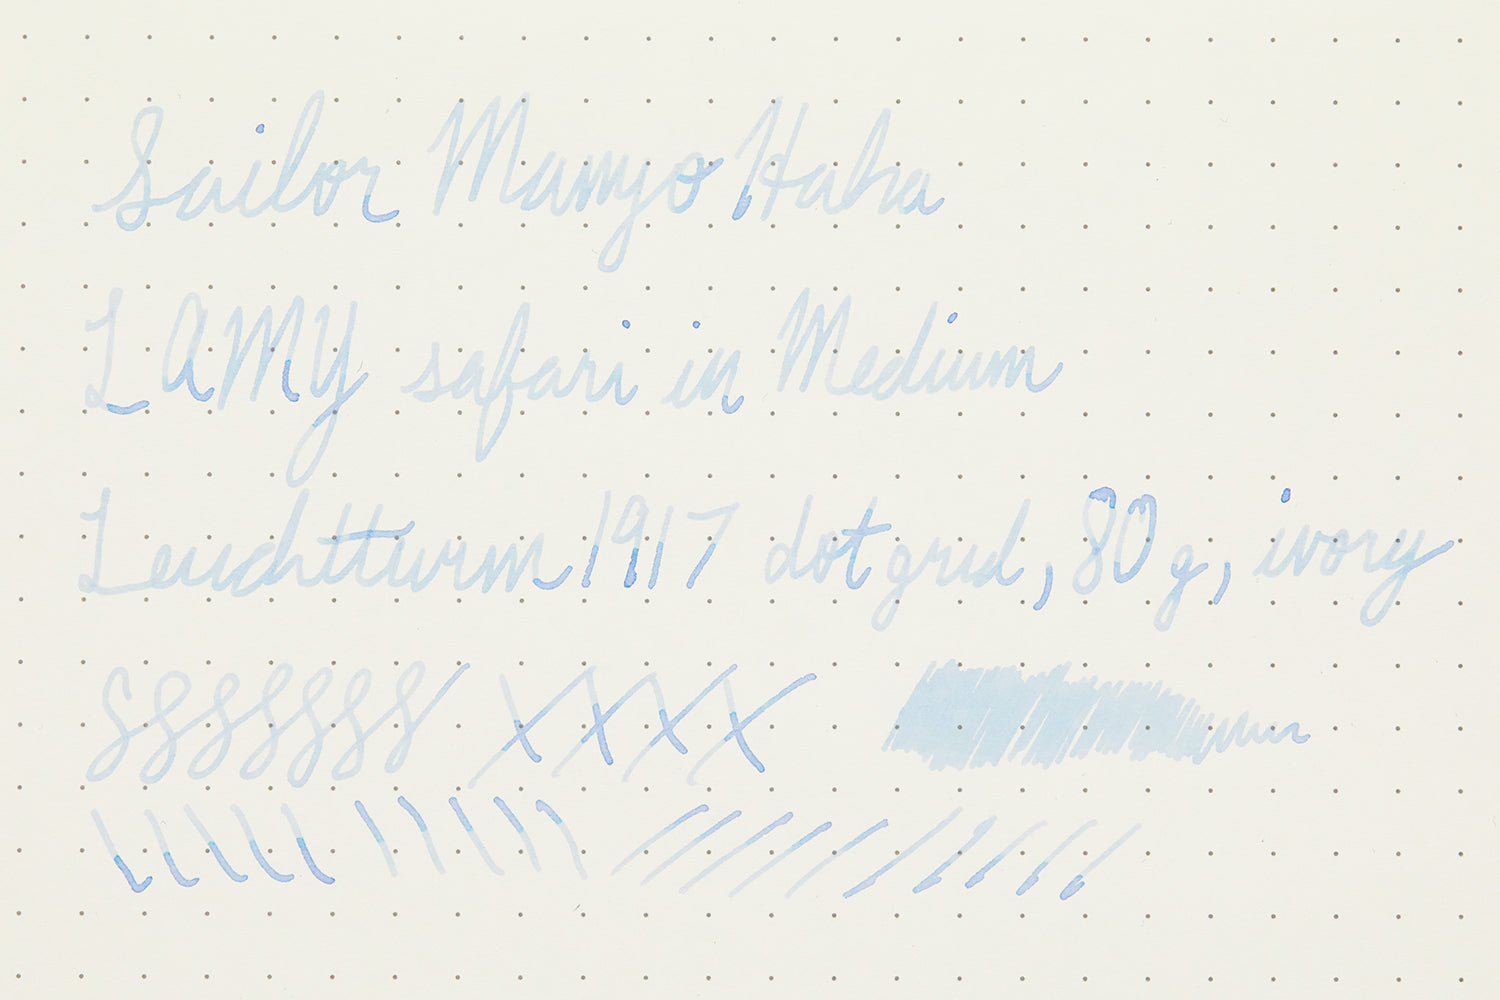 Sailor Manyo Haha
LAMY safari in Medium
Leuchtturm1917 dot grid, 80g, ivory